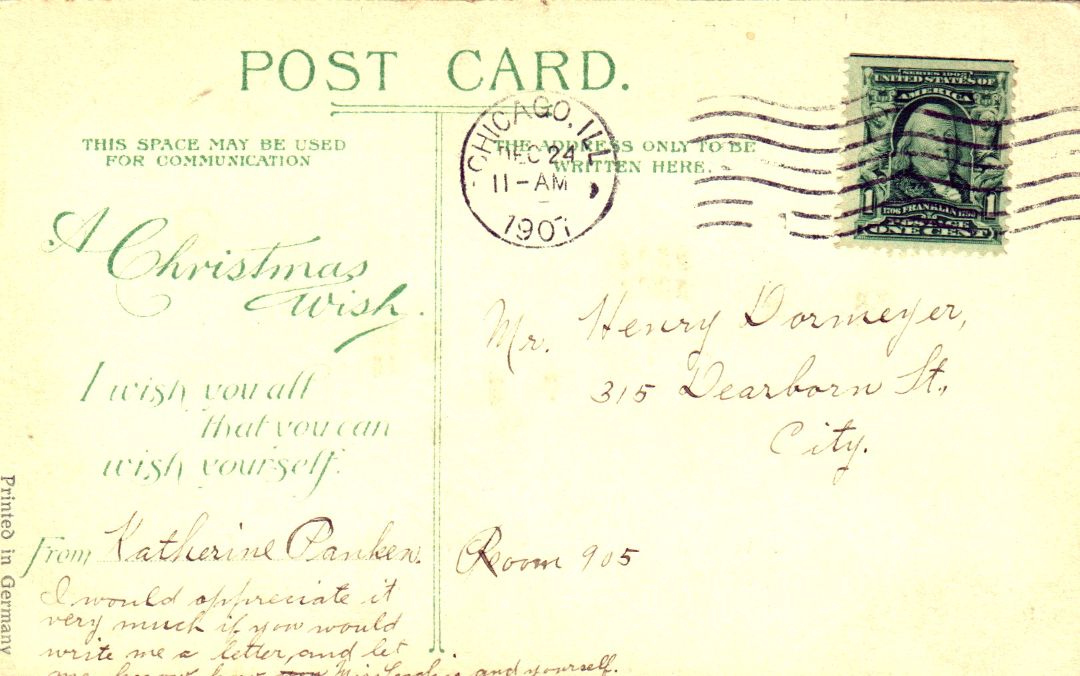 POST CARD.
THIS SPACE MAY BE USED
FOR COMMUNICATION
THE ADDRESS ONLY TO BE
WRITTEN HERE.
CHICAGO, ILL.
DEC 24
11-AM
1907
SERIES 1902
UNITED STATES OF
AMERICA
1 1706 FRANKLIN 1790 1
POSTAGE
ONE CENT
A Christmas
Wish.
I wish you all
that you can
wish yourself.
From Katherine Panken.
I would appreciate it
very much if you would
write me a letter, and let
me know how Miss and yourself.
Mr. Henry Dormeyer,
315 Dearborn St.,
City.
Room 905
Printed in Germany